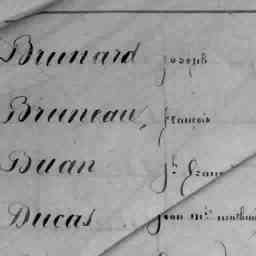 Brunard Joseph
Bruneau, François
Buan Jh
Ducas Jean